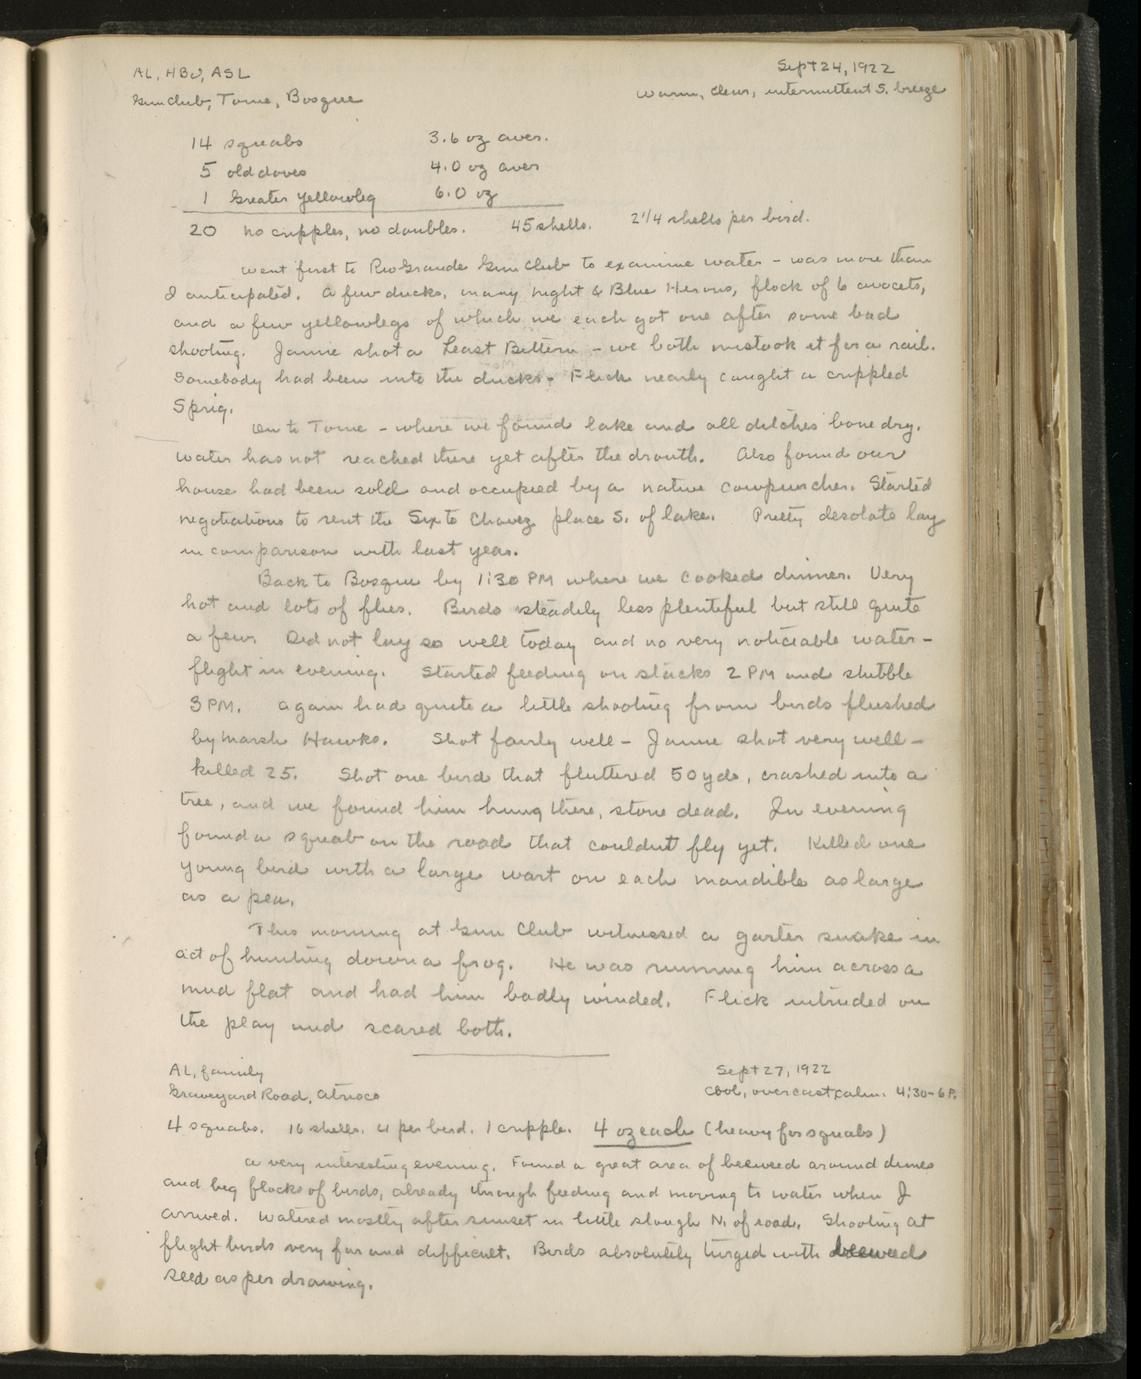 AL, HBJ, ASL Sept 24, 1922
Gun Club, Tome, Bosque warm, clear, intermittent S. breeze
14 squabs 3.6 oz aver.
5 old doves 4.0 oz aver
1 Greater Yellowleg 6.0 oz
20 no cripples, no doubles. 45 shells. 2 1/4 shells per bird.
Went first to Rio Grande Gun Club to examine water - was more than
I anticipated. A few ducks, many night & Blue Herons, flock of 6 avocets,
and a few yellowlegs of which we each got one after some bad
shooting. Jamie shot a Least Bittern - we both mistook it for a rail.
Somebody had been into the ducks - Flick nearly caught a crippled
Sprig.
On to Tome - where we found lake and all ditches bone dry.
Water has not reached there yet after the drouth. Also found our
house had been sold and occupied by a native cowpuncher. Started
negotiations to rent the Sixto Chavez place S. of lake. Pretty desolate lay
in comparison with last year.
Back to Bosque by 1:30 PM where we cooked dinner. Very
hot and lots of flies. Birds steadily less plentiful but still quite
a few. Did not lay so well today and no very noticeable water-
flight in evening. Started feeding on stacks 2 PM and stubble
3 PM. Again had quite a little shooting from birds flushed
by Marsh Hawks. Shot fairly well - Jamie shot very well -
killed 25. Shot one bird that fluttered 50 yds, crashed into a
tree, and we found him hung there, stone dead. In evening
found a squab on the road that couldnt fly yet. Killed one
young bird with a large wart on each mandible as large
as a pea.
This morning at Gun Club witnessed a garter snake in
act of hunting down a frog. He was running him across a
mud flat and had him badly winded. Flick intruded on
the play and scared both.
AL, family Sept 27, 1922
Graveyard Road, Atrisco Cool, overcast, calm. 4:30-6 P.
4 squabs. 16 shells. 4 per bird. 1 cripple. 4 oz each (heavy for squabs)
A very interesting evening. Found a great area of beeweed around dunes
and big flocks of birds, already through feeding and moving to water when I
arrived. Watered mostly after sunset in little slough N. of road. Shooting at
flight birds very far and difficult. Birds absolutely turged with beeweed
seed as per drawing.